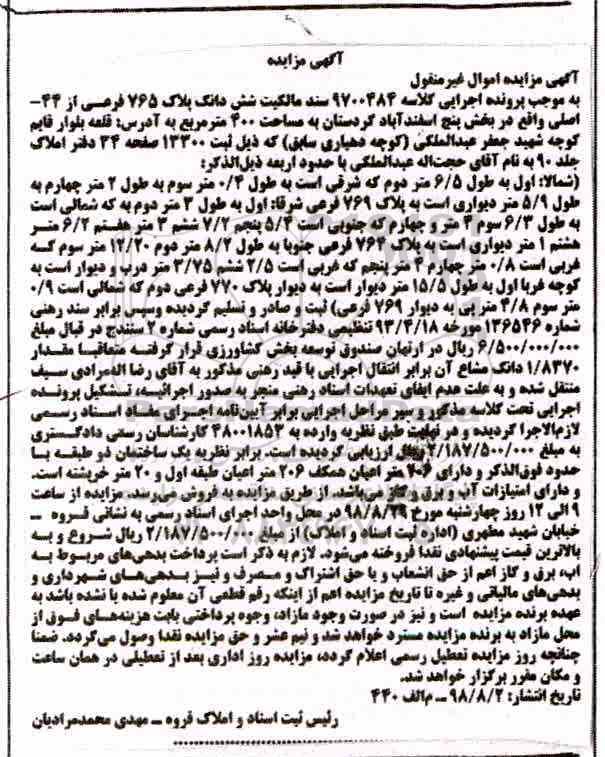 آگهی مزایده
آگهی مزایده اموال غیرمنقول
به موجب پرونده اجرایی کلاسه ۹۷۰۰۴۸۴ سند مالکیت شش دانگ پلاک ۷۶۵ فرعی از ۴۴-
اصلی واقع در بخش پنج اسفندآباد کردستان به مساحت ۴۰۰ مترمربع به آدرس: قلعه بلوار قایم
کوچه شهید جعفر عبدالملکی (کوچه دهیاری سابق) که ذیل ثبت ۱۳۳۰۰ صفحه ۳۴ دفتر املاک
جلد ۹۰ به نام آقای حجت‌اله عبدالملکی با حدود اربعه ذیل‌الذکر:
(شمالا: اول به طول ۶/۵ متر دوم که شرقی است به طول ۰/۳ متر سوم به طول ۲ متر چهارم به
طول ۵/۹ متر دیواری است به پلاک ۷۶۹ فرعی شرقا: اول به طول ۳ متر دوم به که شمالی است
به طول ۶/۳ سوم ۳ متر و چهارم که جنوبی است ۵/۳ پنجم ۷/۲ ششم ۳ متر هفتم ۶/۲ متر
هشتم ۱ متر دیواری است به پلاک ۷۶۴ فرعی جنوبا به طول ۸/۲ متر دوم ۱۲/۲۰ متر سوم که
غربی است ۰/۸ متر چهارم ۴ متر پنجم که غربی است ۲/۵ ششم ۳/۷۵ متر درب و دیوار است به
کوچه غربا اول به طول ۱۵/۵ متر دیوار است به دیوار پلاک ۷۷۰ فرعی دوم که شمالی است ۰/۹
متر سوم ۴/۸ متر پی به دیوار ۷۶۹ فرعی) ثبت و صادر و تسلیم گردیده وسپس برابر سند رهنی
شماره ۱۳۶۵۴۶ مورخه ۹۳/۴/۱۸ تنظیمی دفترخانه اسناد رسمی شماره ۲ سنندج در قبال مبلغ
۶/۵۰۰/۰۰۰/۰۰۰ ریال در ارتهان صندوق توسعه بخش کشاورزی قرار گرفته متعاقبا مقدار
۱/۸۳۷۰ دانگ مشاع آن برابر انتقال اجرایی با قید رهنی مذکور به آقای رضا اله‌مرادی سیف
منتقل شده و به علت عدم ایفای تعهدات اسناد رهنی منجر به صدور اجرائیه، تشکیل پرونده
اجرایی تحت کلاسه مذکور و سیر مراحل اجرایی برابر آیین‌نامه اجرای مفاد اسناد رسمی
لازم‌الاجرا گردیده و در نهایت طبق نظریه وارده به ۴۸۰۰۱۸۵۳ کارشناسان رسمی دادگستری
به مبلغ ۲/۱۸۷/۵۰۰/۰۰۰ ریال ارزیابی گردیده است. برابر نظریه یک ساختمان دو طبقه با
حدود فوق‌الذکر و دارای ۲۰۶ متر اعیان همکف ۲۰۶ متر اعیان طبقه اول و ۲۰ متر خرپشته است.
و دارای امتیازات آب و برق و گاز می‌باشد. از طریق مزایده به فروش می‌رسد. مزایده از ساعت
۹ الی ۱۲ روز چهارشنبه مورخ ۹۸/۸/۲۹ در محل واحد اجرای اسناد رسمی به نشانی قروه –
خیابان شهید مطهری (اداره ثبت اسناد و املاک) از مبلغ ۲/۱۸۷/۵۰۰/۰۰۰ ریال شروع و به
بالاترین قیمت پیشنهادی نقدا فروخته می‌شود. لازم به ذکر است پرداخت بدهی‌های مربوط به
آب، برق و گاز اعم از حق انشعاب و یا حق اشتراک و مصرف و نیز بدهی‌های شهرداری و
بدهی‌های مالیاتی و غیره تا تاریخ مزایده اعم از اینکه رقم قطعی آن معلوم شده یا نشده باشد به
عهده برنده مزایده است و نیز در صورت وجود مازاد، وجوه پرداختی بابت هزینه‌های فوق از
محل مازاد به برنده مزایده مسترد خواهد شد و نیم عشر و حق مزایده نقدا وصول می‌گردد. ضمنا
چنانچه روز مزایده تعطیل رسمی اعلام گردد، مزایده روز اداری بعد از تعطیلی در همان ساعت
و مکان مقرر برگزار خواهد شد.
تاریخ انتشار: ۹۸/۸/۲ – م‌الف ۴۴۰
رئیس ثبت اسناد و املاک قروه – مهدی محمدمرادیان